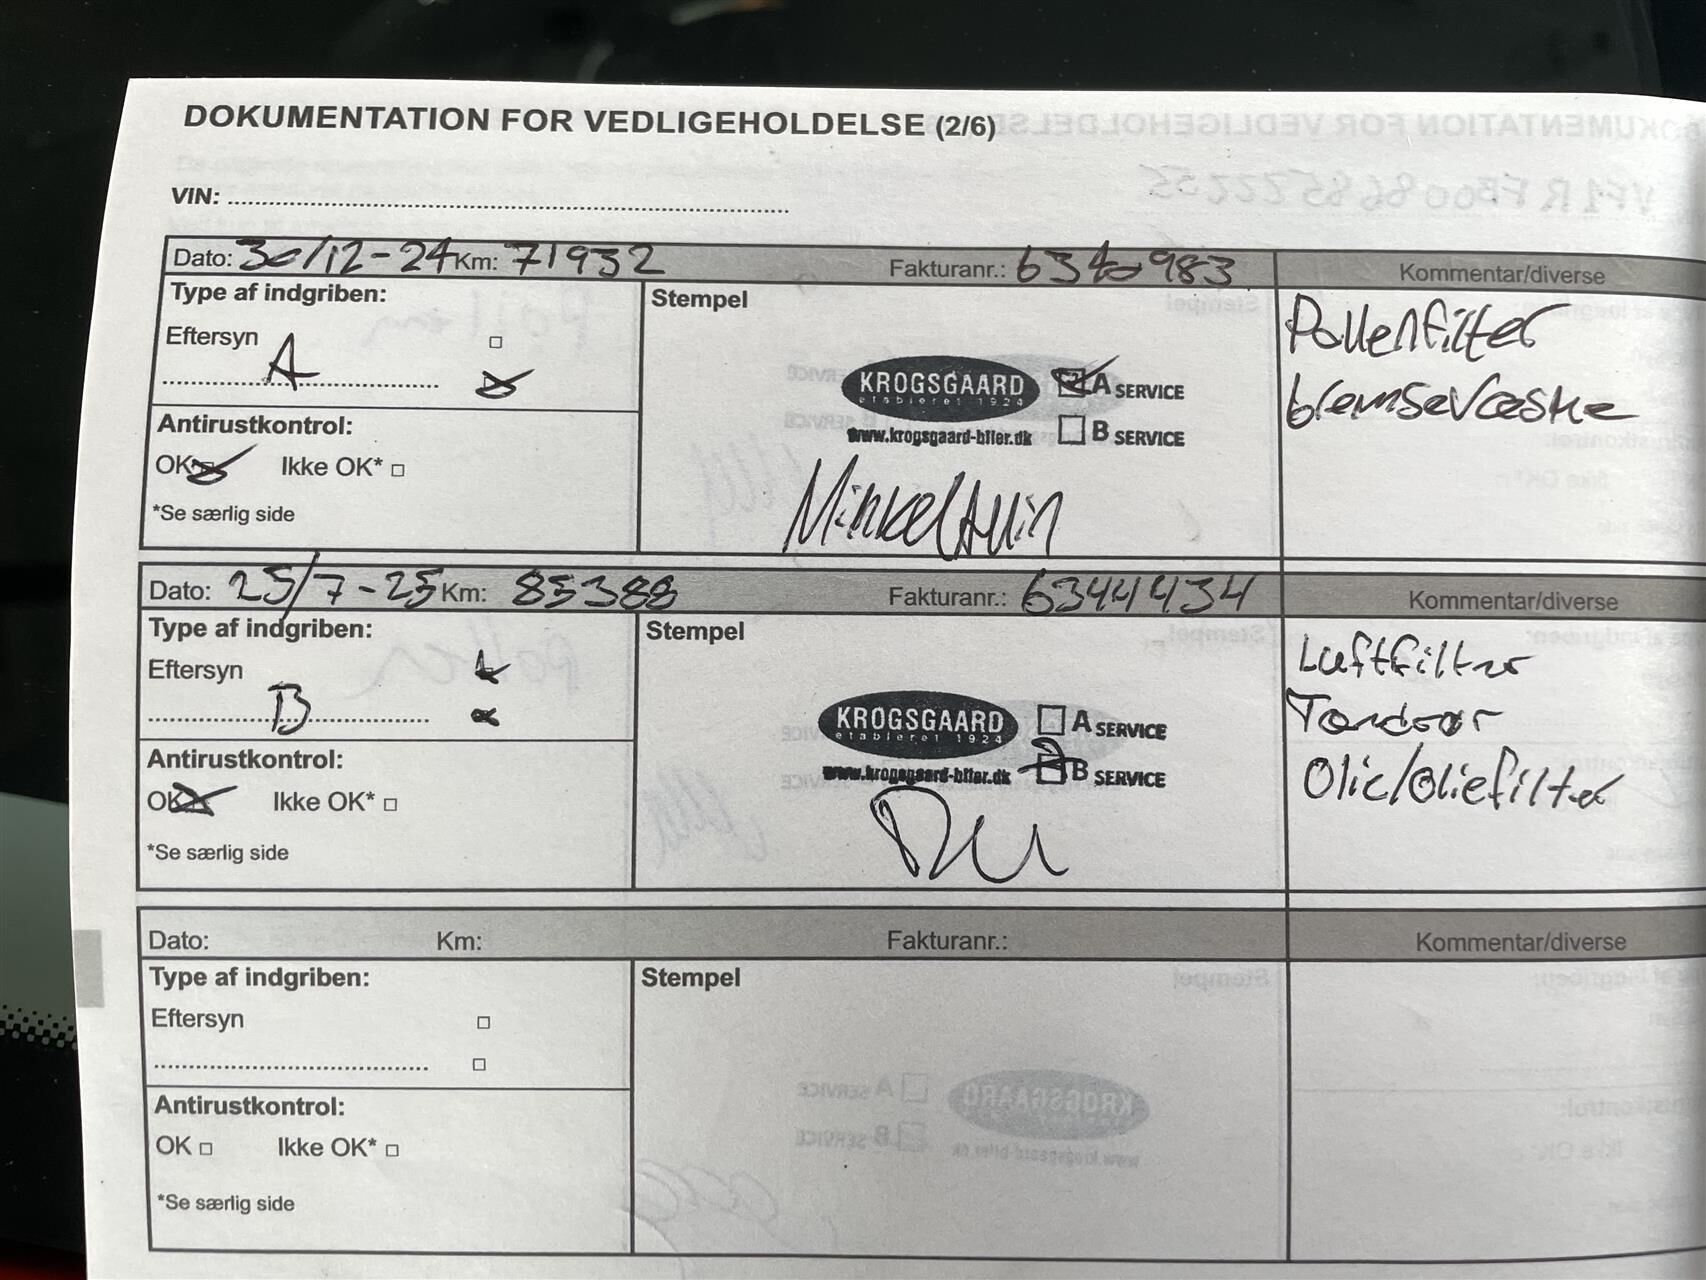 DOKUMENTATION FOR VEDLIGEHOLDELSE (2/6)
VIN:
Dato: 30/12-24 Km: 71932 Fakturanr.: Kommentar/diverse
Type af indgriben: Stempel Pollenfilter
Eftersyn
A
KROGSGAARD A SERVICE bremsevæske
etableret 1924
Antirustkontrol: www.krogsgaard-biler.dk B SERVICE
OK Ikke OK*
*Se særlig side
Dato: 25/7-25 Km: 85388 Fakturanr.: 6344434 Kommentar/diverse
Type af indgriben: Stempel Luftfilter
Eftersyn
B
KROGSGAARD A SERVICE
etableret 1924
Antirustkontrol: www.krogsgaard-biler.dk B SERVICE Olie/oliefilter
OK Ikke OK*
*Se særlig side
Dato: Km: Fakturanr.: Kommentar/diverse
Type af indgriben: Stempel
Eftersyn
Antirustkontrol:
OK Ikke OK*
*Se særlig side